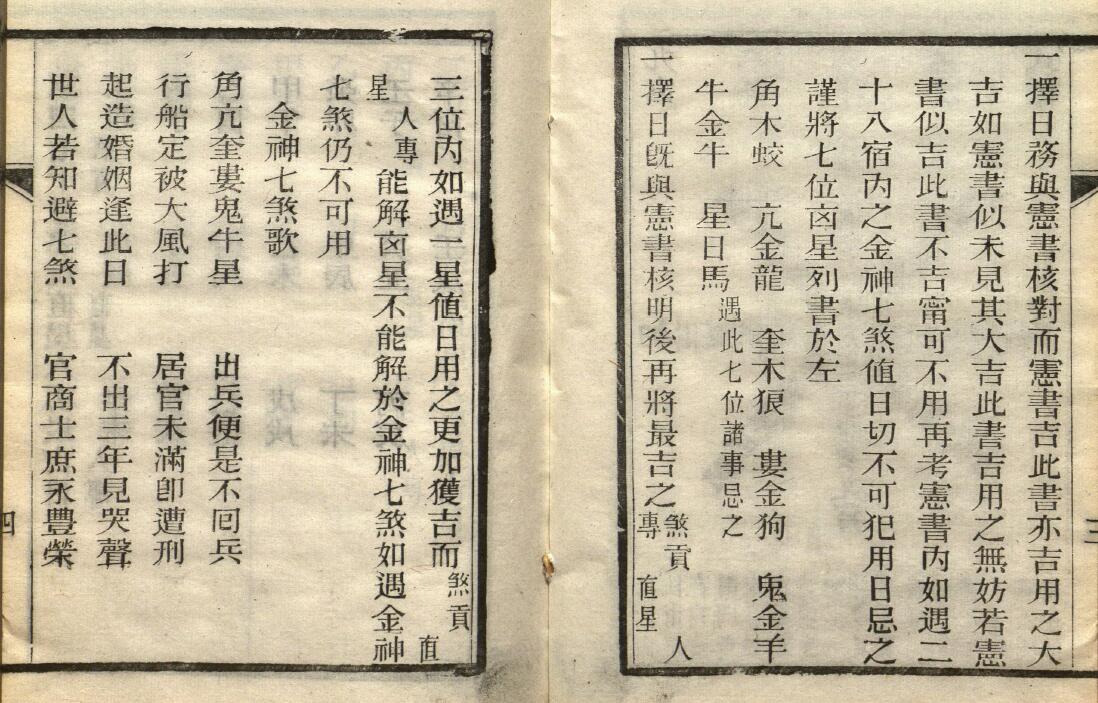 三
一擇日務與憲書核對而憲書吉此書亦吉用之大
吉如憲書似未見其大吉此書吉用之無妨若憲
書似吉此書不吉甯可不用再考憲書內如遇二
十八宿內之金神七煞值日切不可犯用日忌之
謹將七位凶星列書於左
角木蛟 亢金龍 奎木狼 婁金狗 鬼金羊
牛金牛 星日馬 遇此七位諸事忌之
一擇日旣與憲書核明後再將最吉之 煞貢 人專 直星
三位內如遇一星値日用之更加獲吉而 煞貢 直
星 人專 能解凶星不能解於金神七煞如遇金神
七煞仍不可用
金神七煞歌
角亢奎婁鬼牛星 出兵便是不囘兵
行船定被大風打 居官未滿卽遭刑
起造婚姻逢此日 不出三年見哭聲
世人若知避七煞 官商士庶永豐榮
四